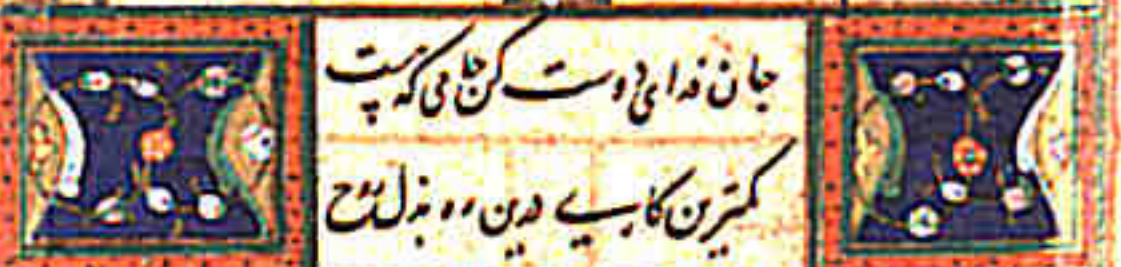 جان فدای دوست کن جامی که هست
کمترین کاری درین ره بذل روح